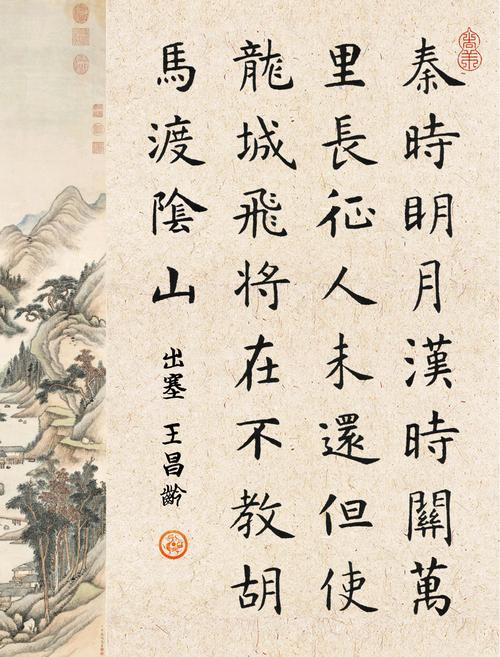 秦時明月漢時關萬
里長征人未還但使
龍城飛將在不教胡
馬渡陰山
出塞 王昌齡